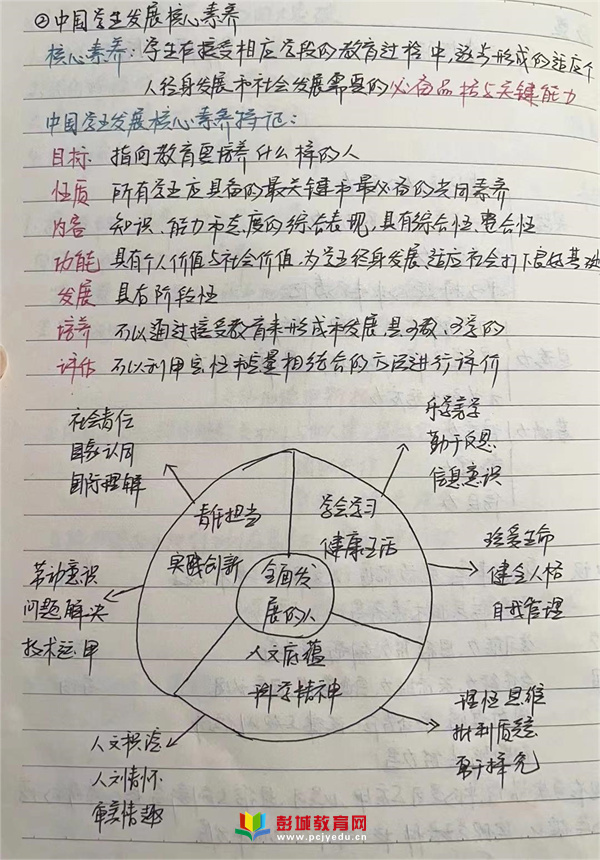 ②中国学生发展核心素养
核心素养：学生在接受相应学段的教育过程中,逐步形成的适应个
人终身发展和社会发展需要的必备品格与关键能力
中国学生发展核心素养特记：
目标 指向教育要培养什么样的人
性质 所有学生应具备的最关键和最必备的共同素养
内容 知识、能力和态度的综合表现,具有综合性、整合性
功能 具有个人价值与社会价值,为学生终身发展、适应社会打下良好基础
发展 具有阶段性
培养 可以通过接受教育来形成和发展,是可教、可学的
评估 可以利用定性和定量相结合的方法进行评价
社会责任
国家认同
国际理解
乐学善学
勤于反思
信息意识
责任担当
学会学习
实践创新
健康生活
全面发
展的人
劳动意识
问题解决
技术运用
珍爱生命
健全人格
自我管理
人文底蕴
科学精神
人文积淀
人文情怀
审美情趣
理性思维
批判质疑
勇于探究
彭城教育网
www.pcjyedu.cn